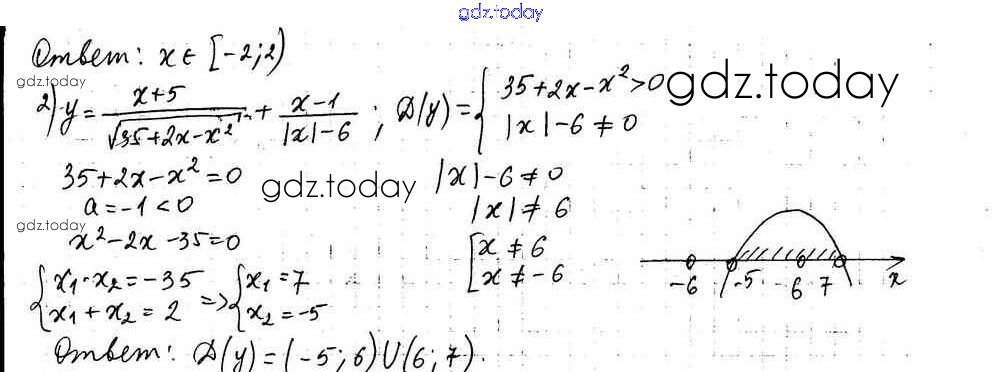 gdz.today
Ответ: x ∈ [-2; 2)
gdz.today
2) y = (x+5)/√(35+2x-x²) + (x-1)/(|x|-6) ; D(y) = { 35+2x-x² > 0
|x|-6 ≠ 0
gdz.today
35+2x-x² = 0
|x|-6 ≠ 0
gdz.today
a = -1 < 0
|x| ≠ 6
gdz.today
x²-2x-35=0
[ x ≠ 6
x ≠ -6
{ x₁·x₂ = -35
x₁+x₂ = 2 => { x₁ = 7
x₂ = -5
-6 -5 6 7 x
Ответ: D(y) = (-5; 6) U (6; 7).